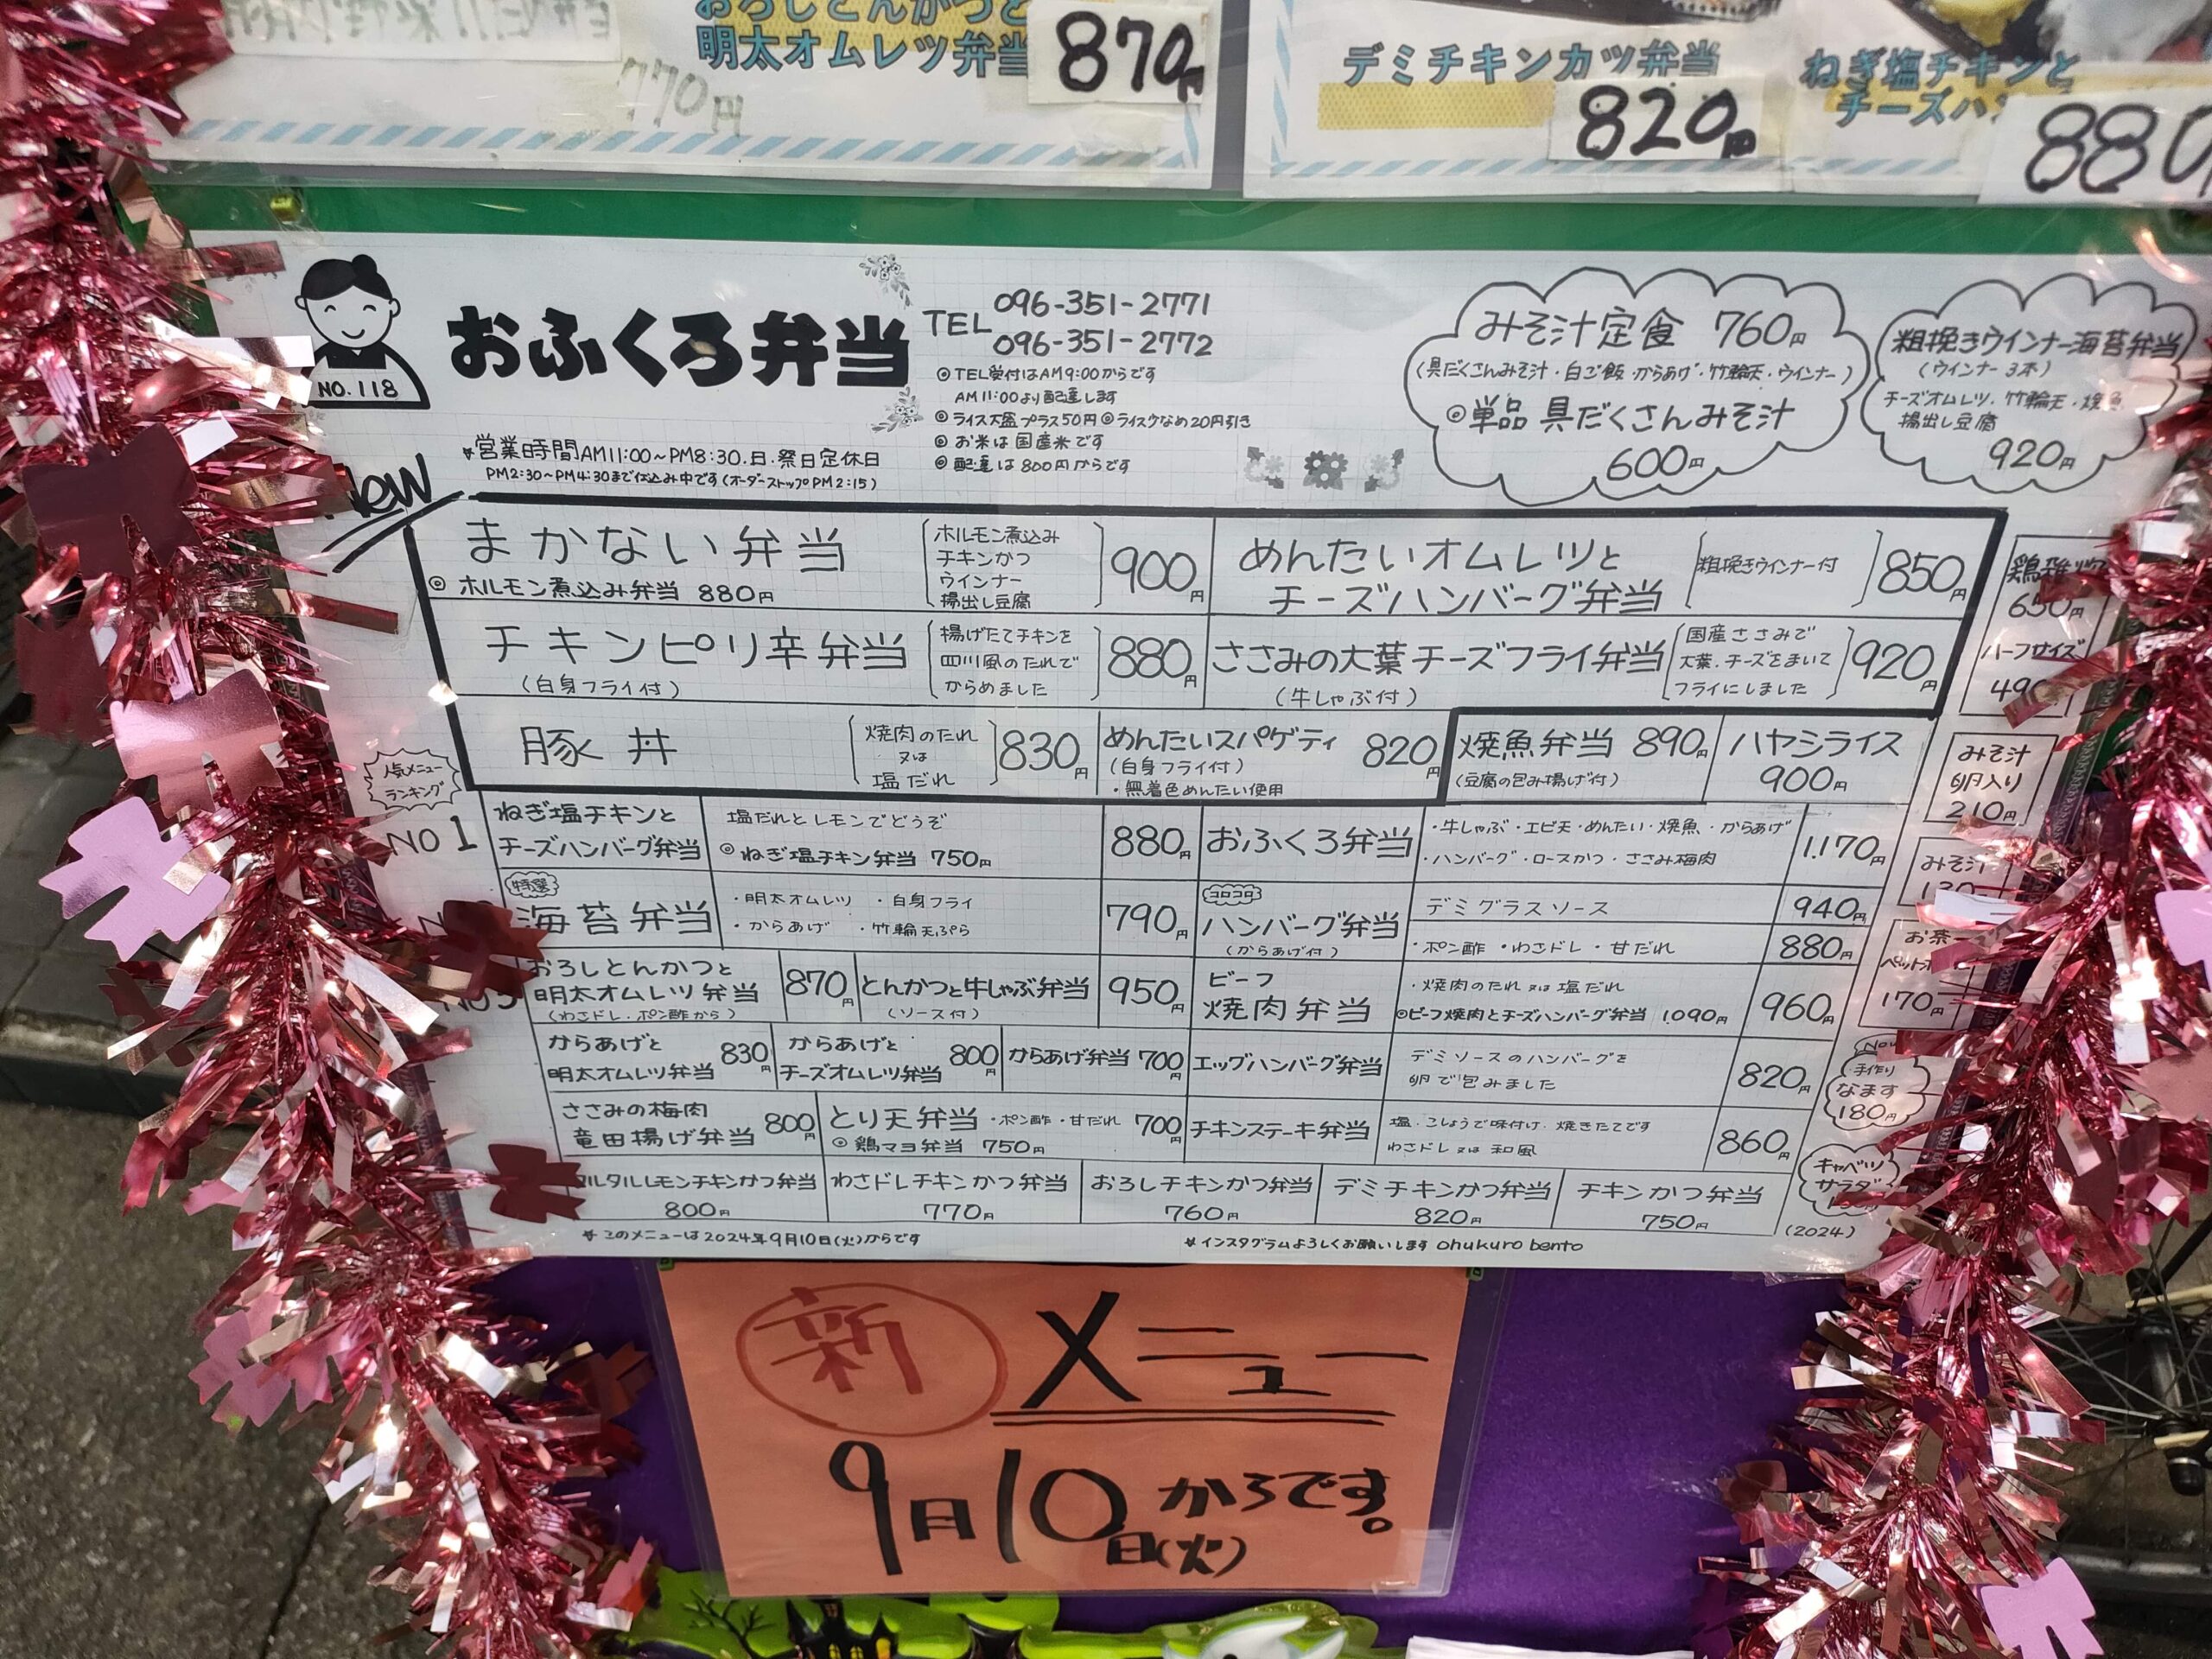 おろしとんかつと
明太オムレツ弁当
870円
770円
デミチキンカツ弁当
820円
ねぎ塩チキンと
チーズハン
880
NO.118
おふくろ弁当
TEL 096-351-2771
096-351-2772
◎TEL受付はAM9:00からです
AM11:00より配達します
◎ライス大盛プラス50円◎ライス少なめ20円引き
◎お米は国産米です
◎配達は800円からです
*営業時間AM11:00~PM8:30.日・祭日定休日
PM2:30~PM4:30まで仕込み中です(オーダーストップPM2:15)
みそ汁定食 760円
(具だくさんみそ汁・白ご飯・からあげ・竹輪天・ウインナー)
◎単品 具だくさんみそ汁
600円
粗挽きウインナー海苔弁当
(ウインナー3本)
チーズオムレツ・竹輪天・焼魚
揚出し豆腐
920円
New
まかない弁当
◎ホルモン煮込み弁当 880円
ホルモン煮込み
チキンかつ
ウインナー
揚出し豆腐
900円
めんたいオムレツと
チーズハンバーグ弁当
粗挽きウインナー付
850円
チキンピリ辛弁当
(白身フライ付)
揚げたてチキンを
四川風のたれで
からめました
880円
ささみの大葉チーズフライ弁当
(牛しゃぶ付)
国産ささみで
大葉、チーズをまいて
フライにしました
920円
豚丼
焼肉のたれ
又は
塩だれ
830円
めんたいスパゲティ
(白身フライ付)
・無着色めんたい使用
820円
焼魚弁当 890円
(豆腐の包み揚げ付)
ハヤシライス
900円
鶏雑炊
650円
ハーフサイズ
490
みそ汁
卵入り
210円
みそ汁
130
お茶
170円
手作り
なます
180円
キャベツ
サラダ
人気メニュー
ランキング
NO1
ねぎ塩チキンと
チーズハンバーグ弁当
塩だれとレモンでどうぞ
◎ねぎ塩チキン弁当 750円
880円
おふくろ弁当
・牛しゃぶ・エビ天・めんたい・焼魚・からあげ
・ハンバーグ・ロースかつ・ささみ梅肉
1.170円
特選
海苔弁当
・明太オムレツ ・白身フライ
・からあげ ・竹輪天ぷら
790円
コロコロ
ハンバーグ弁当
(からあげ付)
デミグラスソース
940円
・ポン酢・わさドレ・甘だれ
880円
おろしとんかつと
明太オムレツ弁当
(わさドレ・ポン酢から)
870円
とんかつと牛しゃぶ弁当
(ソース付)
950円
ビーフ
焼肉弁当
・焼肉のたれ又は塩だれ
◎ビーフ焼肉とチーズハンバーグ弁当 1.090円
960円
からあげと
明太オムレツ弁当
830円
からあげと
チーズオムレツ弁当
800円
からあげ弁当 700円
エッグハンバーグ弁当
デミソースのハンバーグを
卵で包みました
820円
ささみの梅肉
竜田揚げ弁当
800円
とり天弁当 ・ポン酢・甘だれ 700円
◎鶏マヨ弁当 750円
チキンステーキ弁当
塩、こしょうで味付け、焼きたてです
わさドレ又は和風
860円
タルタルレモンチキンかつ弁当
800円
わさドレチキンかつ弁当
770円
おろしチキンかつ弁当
760円
デミチキンかつ弁当
820円
チキンかつ弁当
750円
*このメニューは2024年9月10日(火)からです
*インスタグラムよろしくお願いします ohukuro bento
(2024)
新 メニュー
9月10日(火)からです。